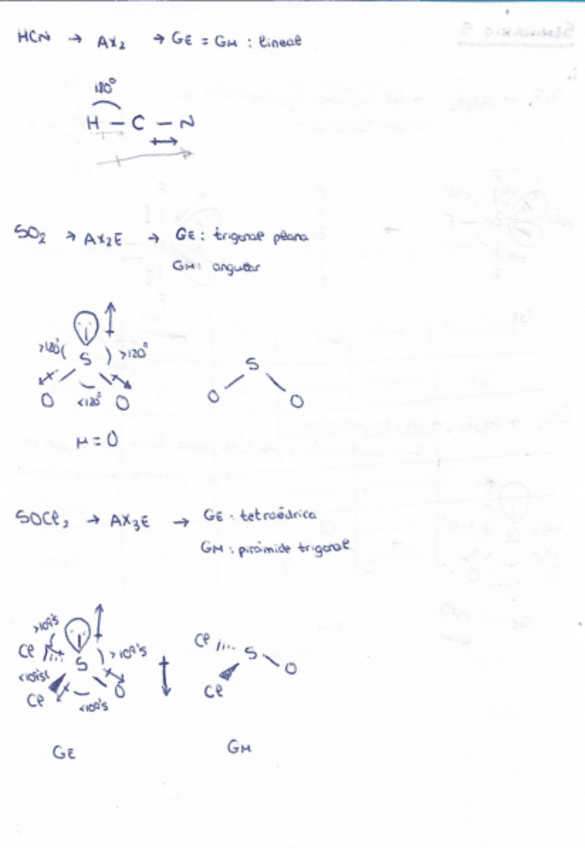 HCN → AX₂ → GE = GM : lineal
180°
H — C — N
SO₂ → AX₂E → GE : trigonal plana
GM : angular
>120° S >120°
O <120° O
S
O O
μ = 0
SOCl₂ → AX₃E → GE : tetraédrica
GM : pirámide trigonal
>109'5
Cl S >109'5
<109'5 O
Cl <109'5
Cl S O
Cl
GE GM